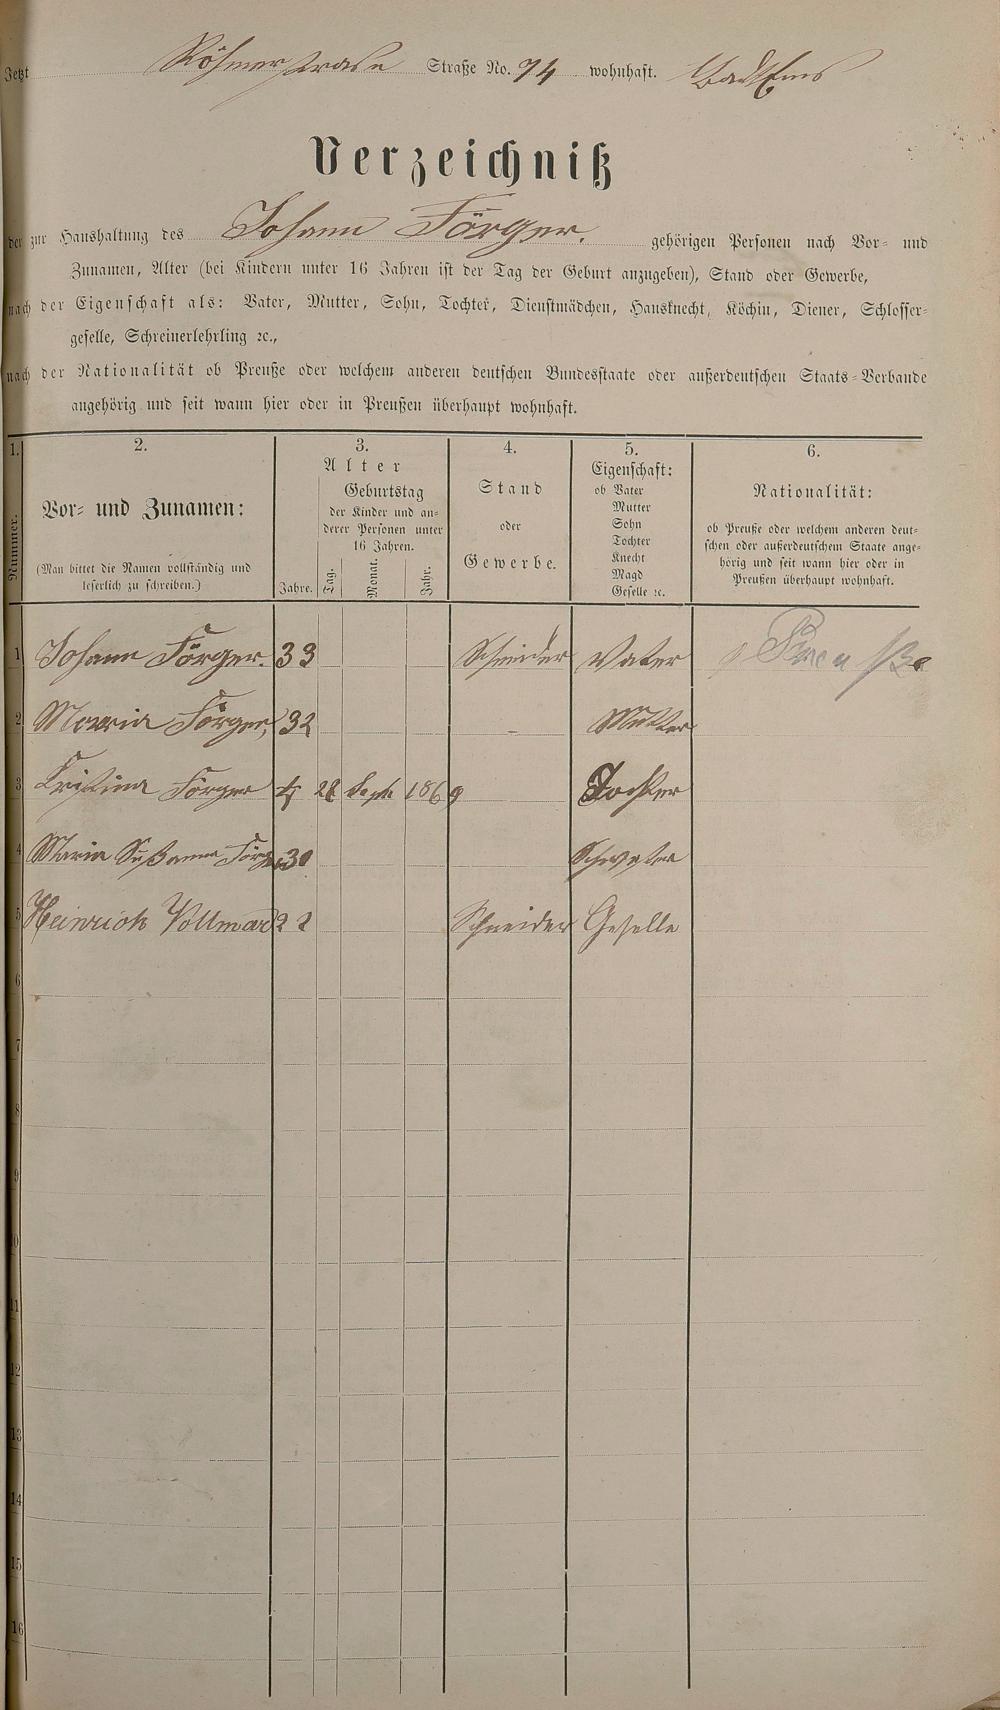 Jetzt Röhmerstrase Straße No. 74 wohnhaft. Bad Ems
Verzeichniß
der zur Haushaltung des Johann Förger. gehörigen Personen nach Vor- und
Zunamen, Alter (bei Kindern unter 16 Jahren ist der Tag der Geburt anzugeben), Stand oder Gewerbe,
nach der Eigenschaft als: Vater, Mutter, Sohn, Tochter, Dienstmädchen, Hausknecht, Köchin, Diener, Schlosser-
geselle, Schreinerlehrling ꝛc.,
nach der Nationalität ob Preuße oder welchem anderen deutschen Bundesstaate oder außerdeutschen Staats-Verbande
angehörig und seit wann hier oder in Preußen überhaupt wohnhaft.
1. 2. 3. 4. 5. 6.
Nummer.
Vor- und Zunamen:
(Man bittet die Namen vollständig und
leserlich zu schreiben.)
Alter
Jahre.
Geburtstag
der Kinder und an-
derer Personen unter
16 Jahren.
Tag. Monat. Jahr.
Stand
oder
Gewerbe.
Eigenschaft:
ob Vater
Mutter
Sohn
Tochter
Knecht
Magd
Geselle ꝛc.
Nationalität:
ob Preuße oder welchem anderen deut-
schen oder außerdeutschem Staate ange-
hörig und seit wann hier oder in
Preußen überhaupt wohnhaft.
1 Johann Förger. 33 Schneider Vater Preuße
2 Maria Förger, 32 - Mutter
3 Kristina Förger 4 28 Sept 1869 Tochter
4 Maria Sußanna Förger 30 Schwester
5 Heinrich Vollmar 22 Schneider Geselle
6
7
8
9
10
11
12
13
14
15
16